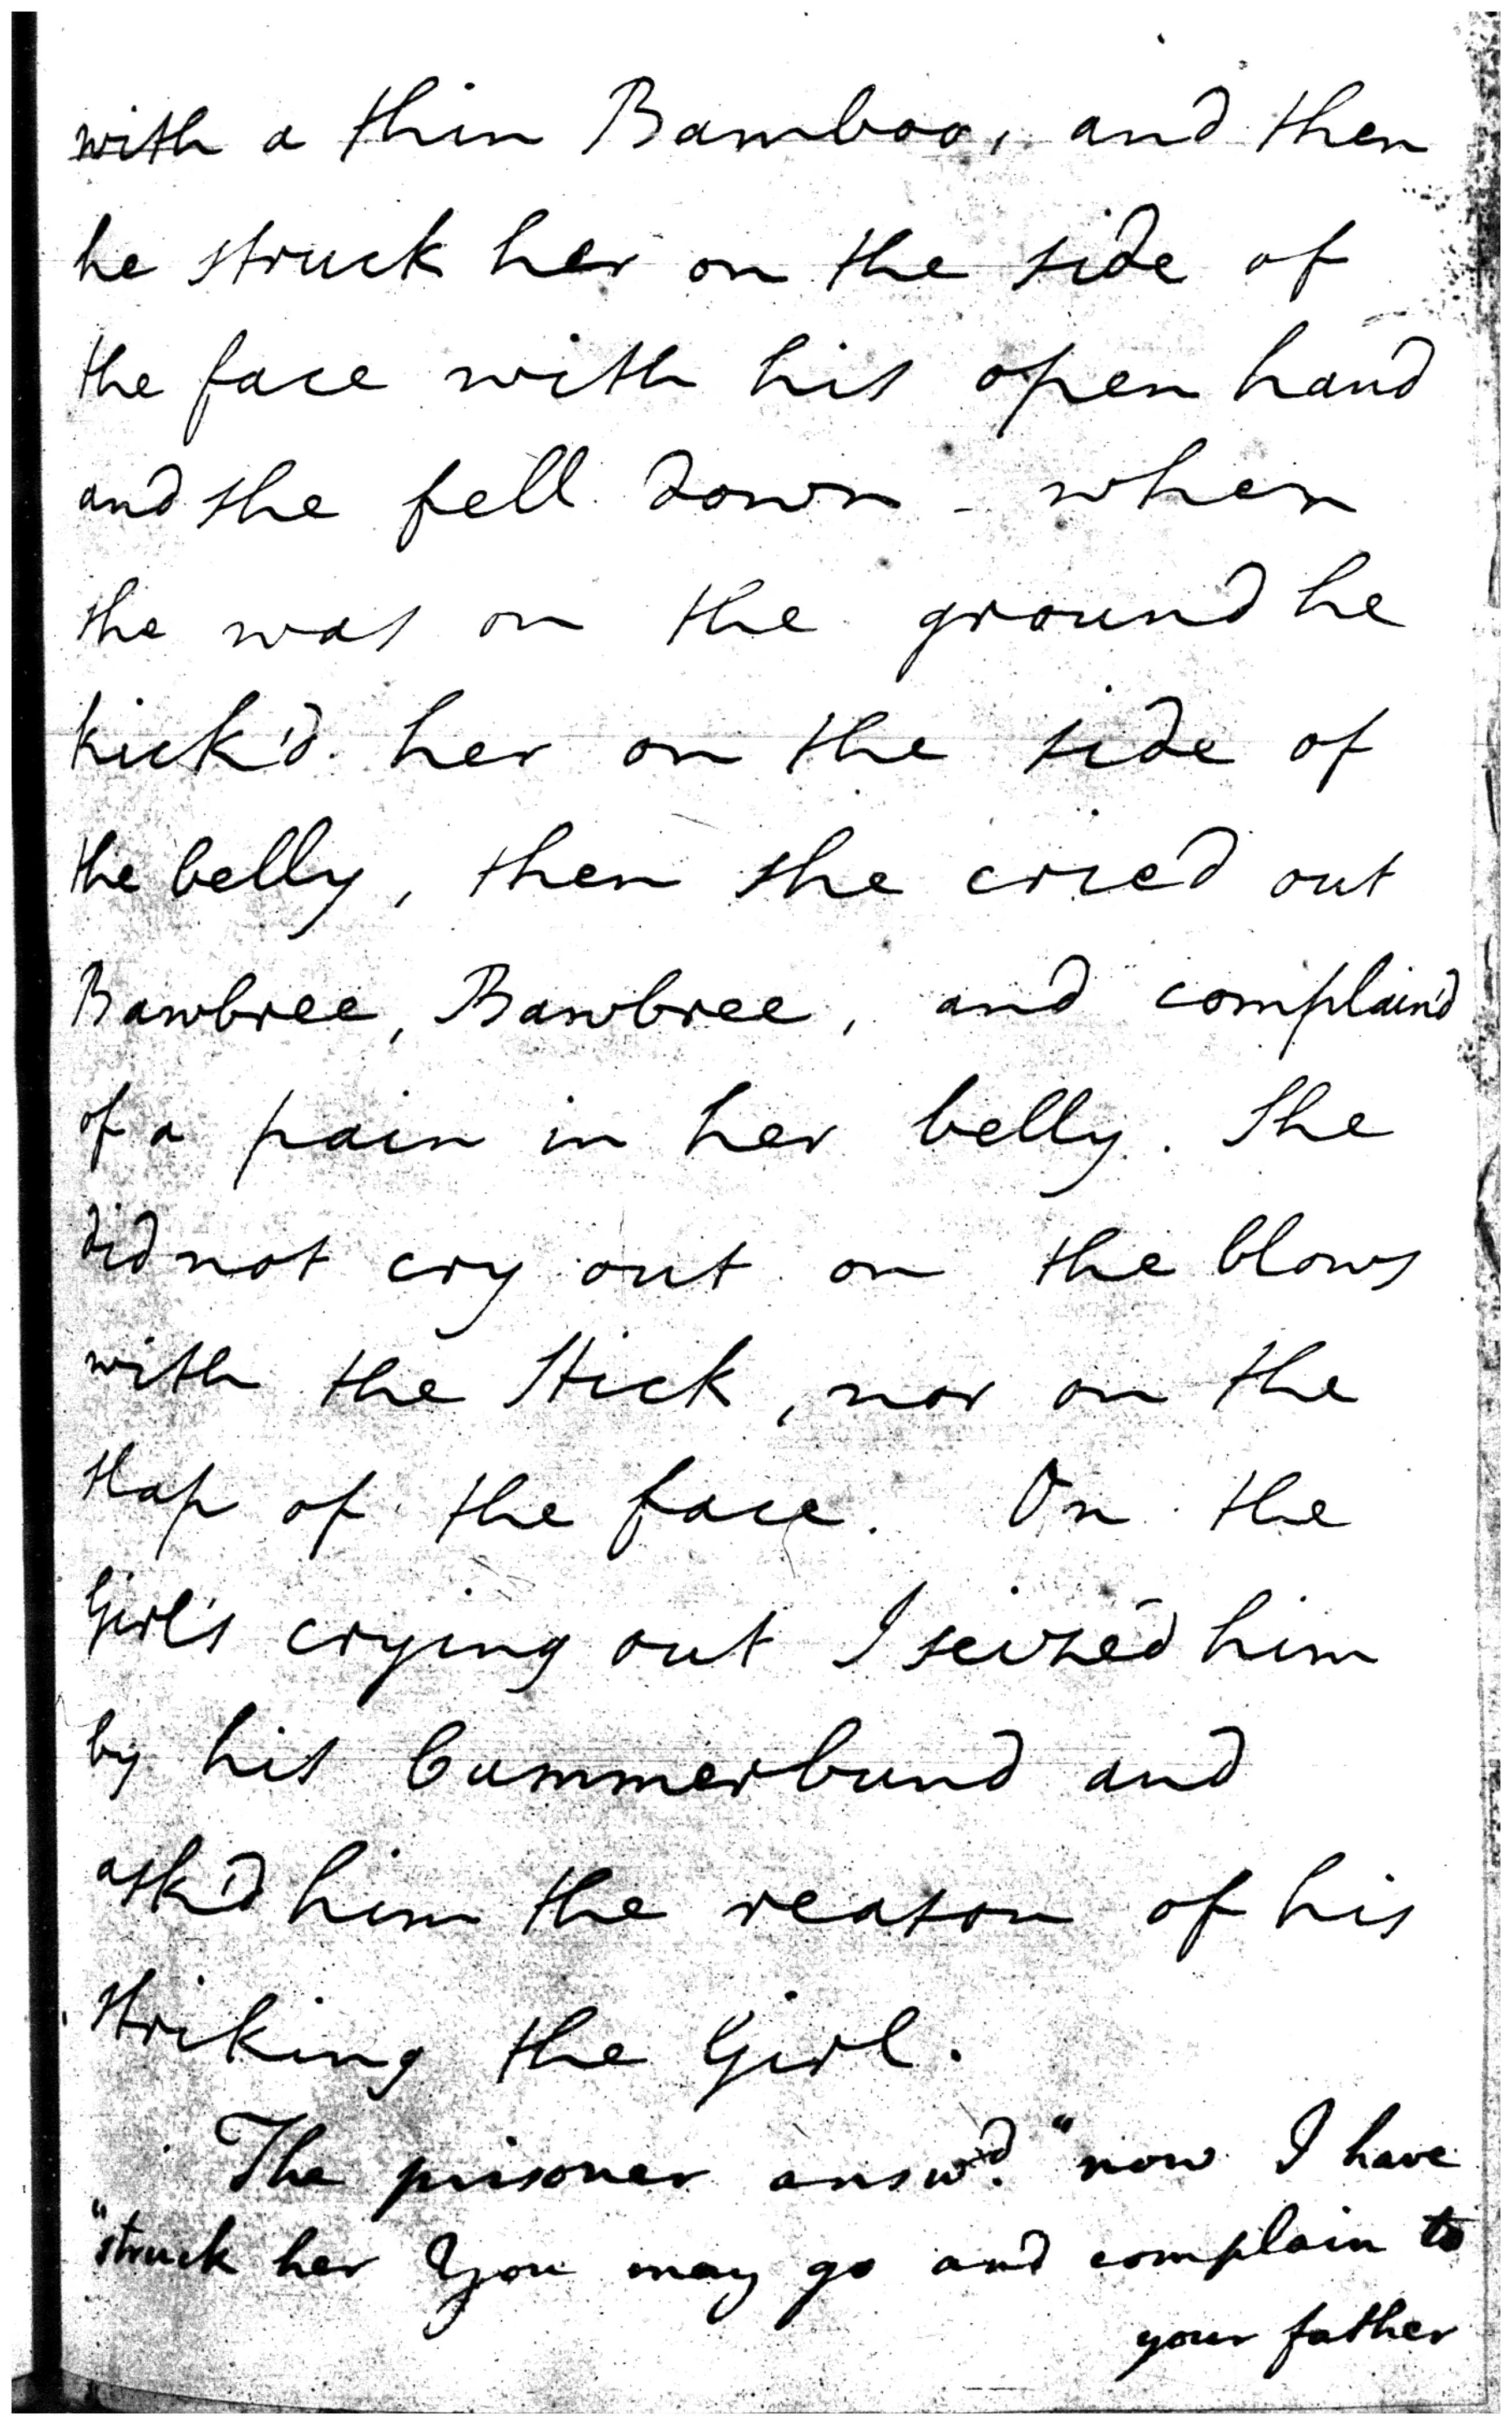 with a thin Bamboo, and then
he struck her on the side of
the face with his open hand
and she fell down - when
she was on the ground he
kick'd her on the side of
the belly, then she cried out
Bawbree, Bawbree, and complain'd
of a pain in her belly. She
did not cry out on the blows
with the Stick, nor on the
slap of the face. On the
Girl's crying out I seized him
by his Cummerbund and
ask'd him the reason of his
striking the Girl.
The prisoner answd. "now I have
"struck her You may go and complain to
your father